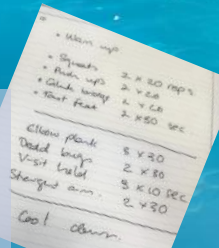 • Warm up
• Squats 2 x 20 reps
• Push ups 2 x 20
• Glute bridge 2 x 20
• Tout feet 2 x 50 sec
Elbow plank 3 x 30
Dead bugs 2 x 30
V-sit hold 3 x 10 sec
Straight arm. 2 x 30
Cool down.